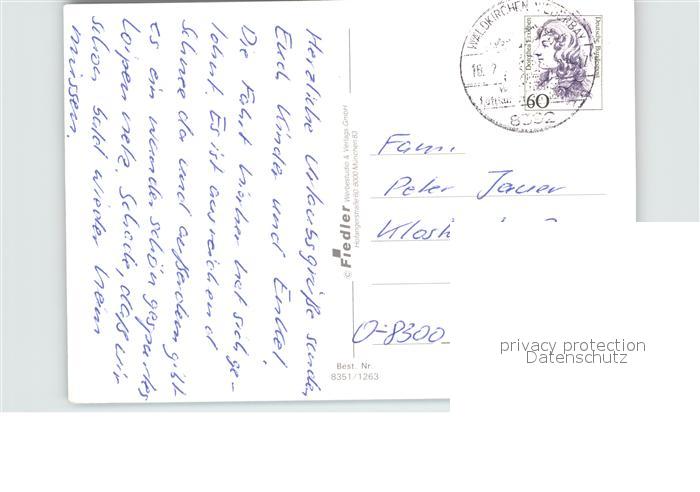 Herzliche Urlaubsgrüße senden
Euch Kinder und Enkel!
Die Fahrt hierher hat sich ge-
lohnt. Es ist ausreichend
Schnee da und außerdem gibt
es ein wunderschön gespurtes
Loipennetz. Schade, daß wir
schon bald wieder heim
müssen.
© Fiedler Werbestudio & Verlags GmbH
Hofangerstraße 80 8000 München 83
Best. Nr.
8351/1263
WALDKIRCHEN
8392
Dorothea Erxleben
Deutsche Bundespost
60
Fam.
Peter Jauer
O-8300
privacy protection
Datenschutz